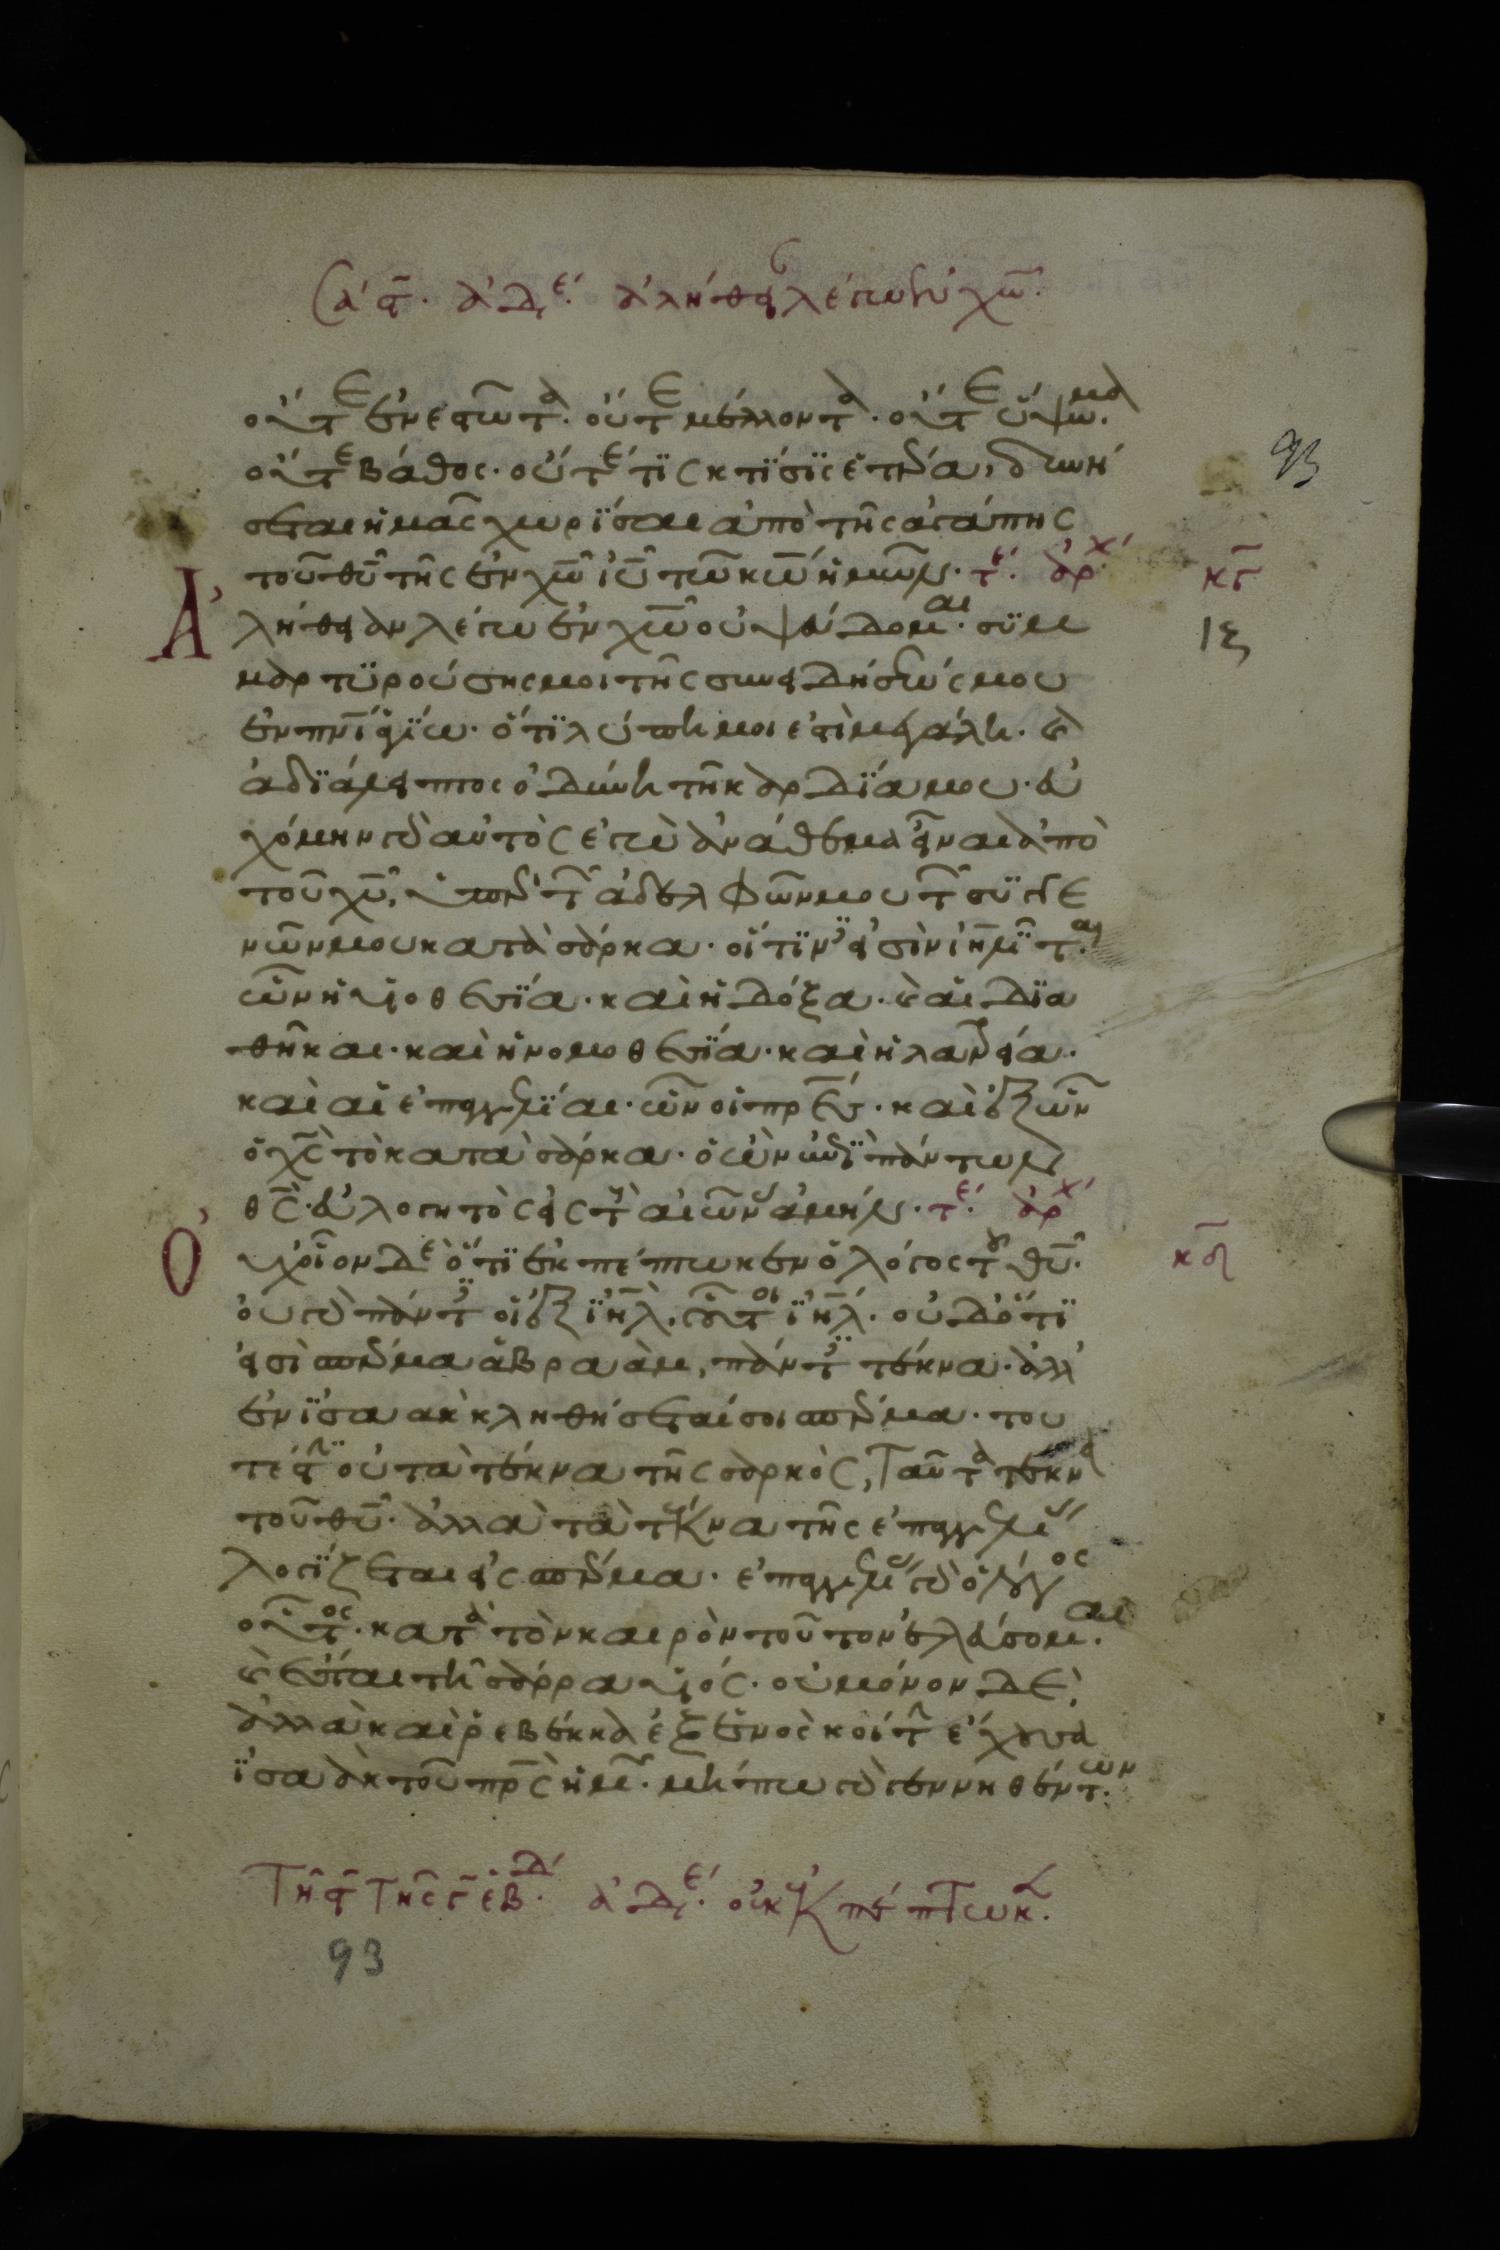 Σα ϛ̄. ἀδε. ἀλήθει λέγω ἐν χω̄.
οὔτε ἐνεστῶτα. οὔτε μέλλοντα. οὔτε ὕψωμα.
οὔτε βάθος. οὔτε τϊς κτϊσϊς ἑτέρα, δυνή
σεται ἡμᾶς χωρϊσαι ἀπὸ τῆς ἀγάπης
τοῦ θῡ τῆς ἐν χω̄ ιῡ τῶ κω̄ ἡμῶν. τε. ἀρχ κγ̄
Ἀλήθειαν λέγω ἐν χω̄ οὐ ψεύδομαι. σϋμ ιϛ
μαρτϋρούσης μοι τῆς συνειδήσεώς μου
ἐν πνῑ ἁγίω. ὅτϊ λύπη μοι ἐστὶ μεγάλη. καὶ
ἀδϊάλειπτος ὀδύνη τῆ καρδϊα μου. εὐ
χόμην γὰρ αὐτὸς ἐγὼ ἀνάθεμα εἶναι ἀπὸ
τοῦ χῡ, ὑπὲρ τῶν ἀδελφῶν μου τῶν σϋγγε
νῶν μου κατὰ σάρκα. οἵτϊνές εἰσὶν ἰηλῖται.
ὧν ἡ υἱοθεσϊα. καὶ ἡ δόξα. καὶ αἱ δϊα
θῆκαι. καὶ ἡ νομοθεσϊα. καὶ ἡ λατρεία.
καὶ αἱ ἐπαγγελϊαι. ὧν οἱ πρ̄ες. καὶ ἐξ ὧν
ὁ χς̄ τὸ κατὰ σάρκα. ὁ ὢν ἐπὶ πάντων
θς̄. εὐλογητὸς εἰς τοὺς αἰῶνας ἀμήν. τε. ἀρχ
Οὐχ οἷον δὲ ὅτϊ ἐκπέπτωκεν ὁ λόγος τοῦ θῡ. κδ
οὐ γὰρ πάντες οἱ ἐξ ϊηλ̄, οὗτοι ϊηλ̄. οὐδ ὅτϊ
εἰσὶ σπέρμα ἀβραὰμ, πάντες τέκνα. ἀλλ
ἐν ϊσαὰκ κληθήσεταί σοι σπέρμα. του
τέστϊν οὐ τὰ τέκνα τῆς σαρκὸς, ταῦτα τέκνα
τοῦ θῡ. ἀλλὰ τὰ τέκνα τῆς ἐπαγγελίας
λογϊζεται εἰς σπέρμα. ἐπαγγελίας γὰρ ὁ λόγος
οὗτος. κατὰ τὸν καιρὸν τοῦτον ἐλεύσομαι.
καὶ ἔσται τῆ σάρρα υἱός. οὐ μόνον δὲ,
ἀλλὰ καὶ ῥεβέκκα ἐξ ἑνὸς κοίτην ἔχουσα
ϊσαὰκ τοῦ πρ̄ς ἡμῶν. μήπω γὰρ γεννηθέντων.
Τῆ ϛ̄ τῆς γ̄ ἑβδ. ἀδε. οὐκ ἐκπέπτωκ.
93